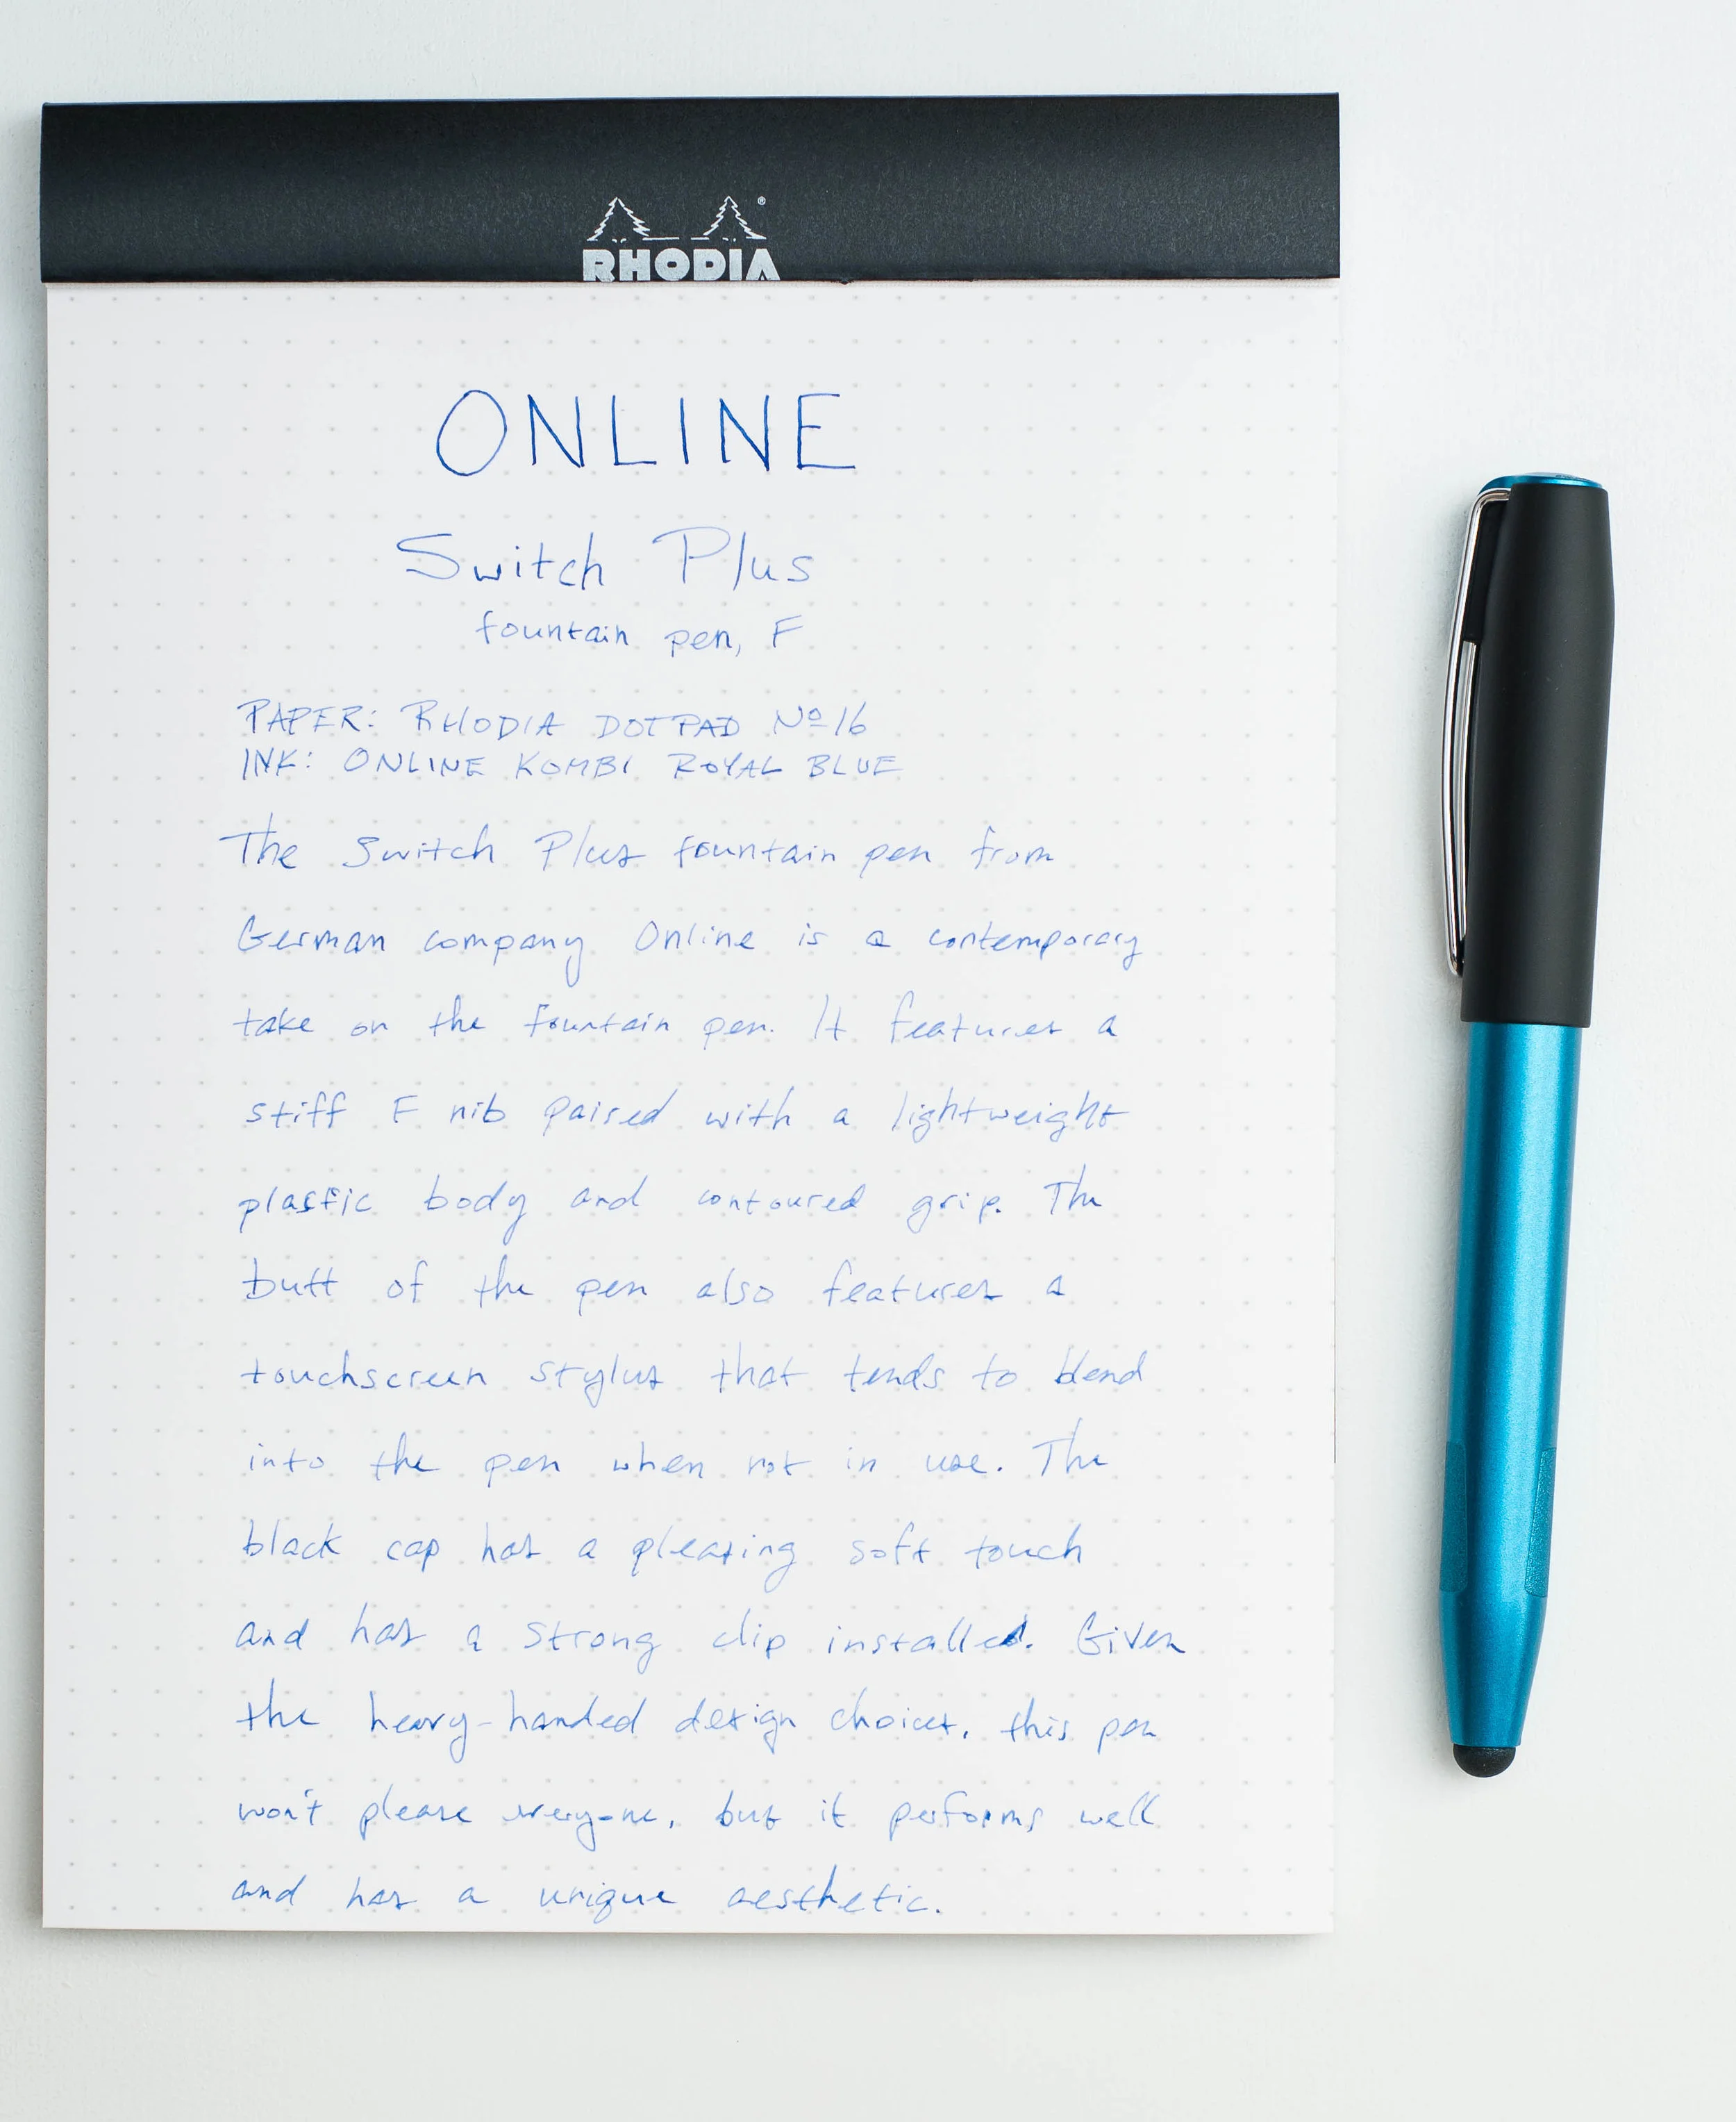 RHODIA
ONLINE
Switch Plus
fountain pen, F
PAPER: RHODIA DOTPAD Nº16
INK: ONLINE KOMBI ROYAL BLUE
The Switch Plus fountain pen from
German company Online is a contemporary
take on the fountain pen. It features a
stiff F nib paired with a lightweight
plastic body and contoured grip. The
butt of the pen also features a
touchscreen stylus that tends to blend
into the pen when not in use. The
black cap has a pleasing soft touch
and has a strong clip installed. Given
the heavy-handed design choices, this pen
won't please everyone, but it performs well
and has a unique aesthetic.